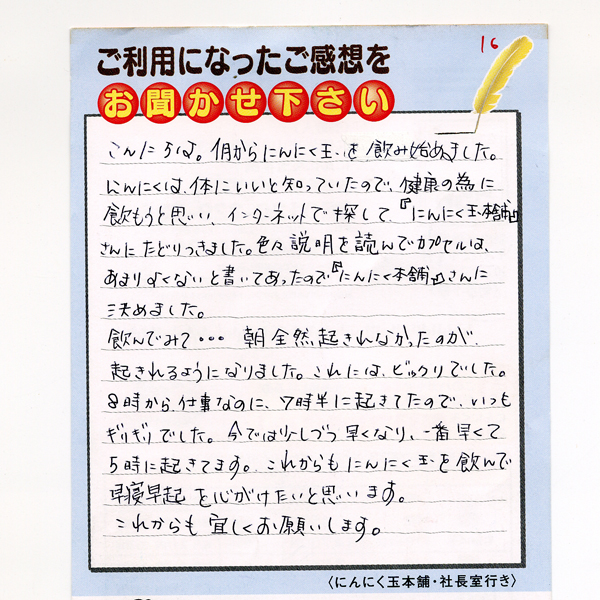 16
ご利用になったご感想を
お聞かせ下さい
こんにちは。1月からにんにく玉を飲み始めました。
にんにくは、体にいいと知っていたので、健康の為に
飲もうと思い、インターネットで探して『にんにく玉本舗』
さんにたどりつきました。色々説明を読んでカプセルは、
あまりよくないと書いてあったので『にんにく本舗』さんに
決めました。
飲んでみて・・・ 朝全然、起きれなかったのが、
起きれるようになりました。これには、ビックリでした。
8時から仕事なのに、7時半に起きてたので、いつも
ギリギリでした。今では少しづつ早くなり、一番早くて
5時に起きてます。これからもにんにく玉を飲んで
早寝早起を心がけたいと思います。
これからも宜しくお願いします。
〈にんにく玉本舗・社長室行き〉